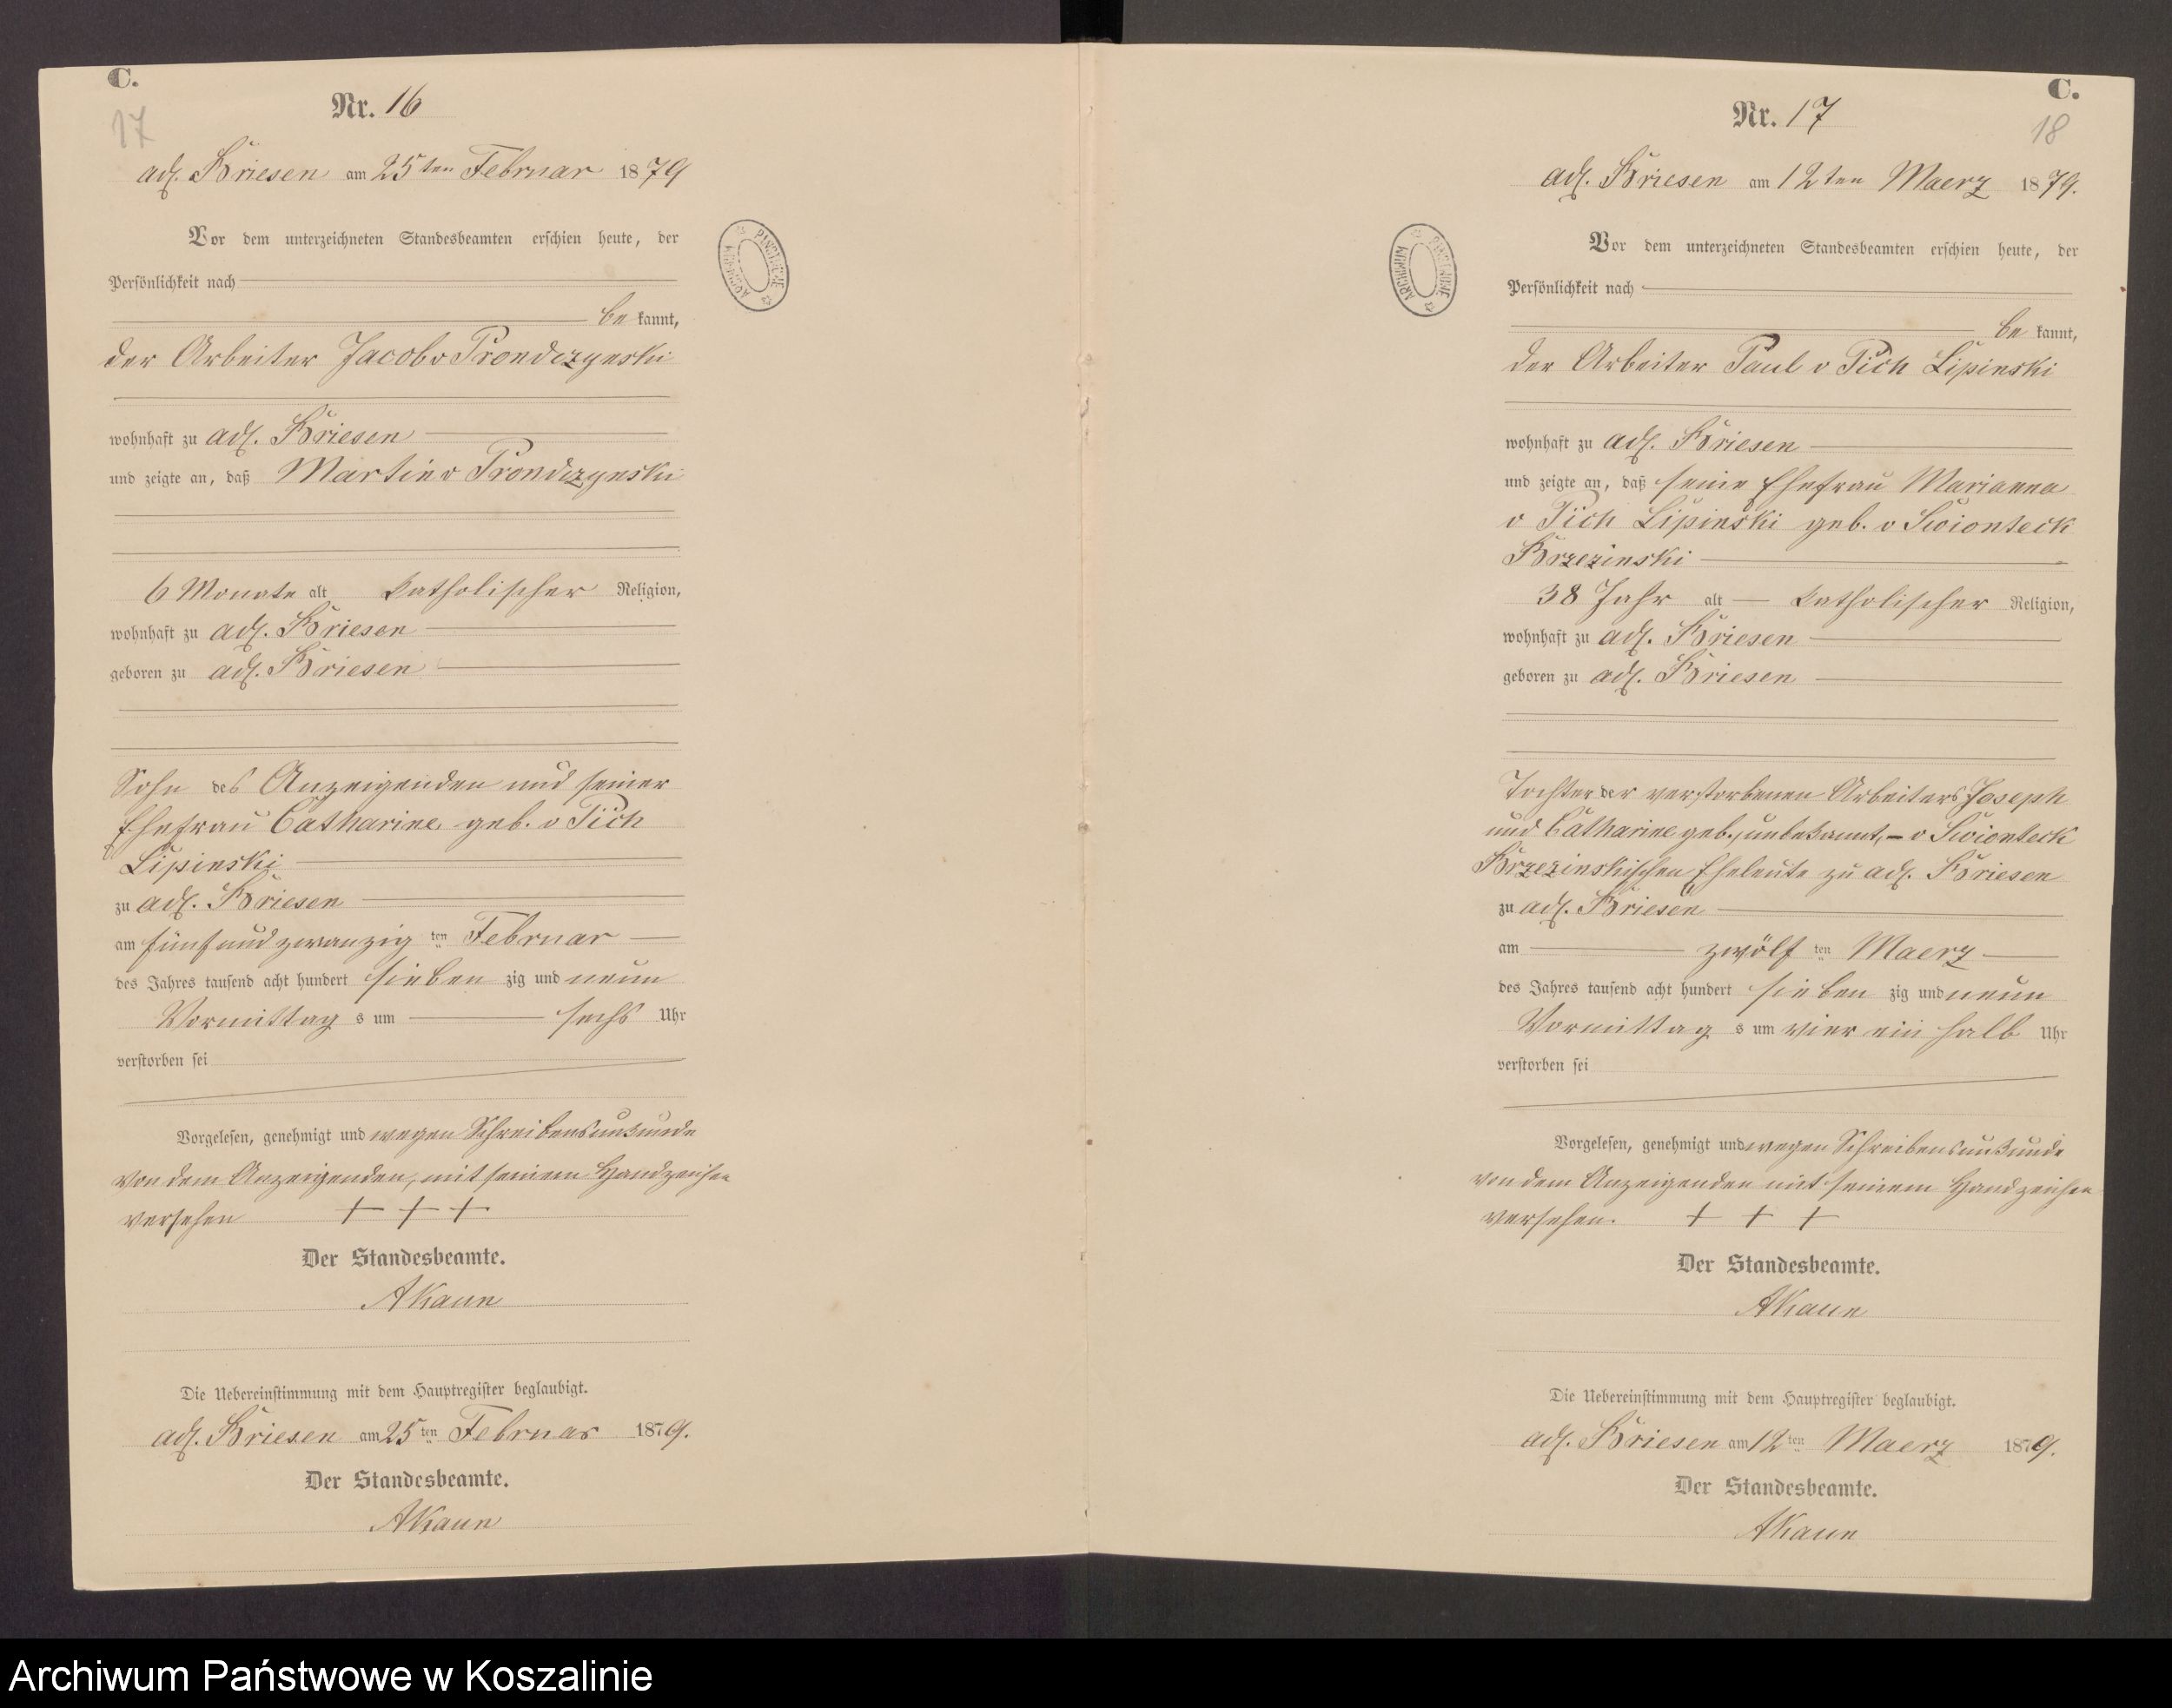 C.
17
Nr. 16
adl. Briesen am 25ten Februar 1879
Vor dem unterzeichneten Standesbeamten erschien heute, der
Persönlichkeit nach
be kannt,
der Arbeiter Jacob v Prondzynski
wohnhaft zu adl. Briesen
und zeigte an, daß Martin v Prondzynski
6 Monate alt katholischer Religion,
wohnhaft zu adl. Briesen
geboren zu adl. Briesen
Sohn des Anzeigenden und seiner
Ehefrau Catharine, geb. v Pich
Lipinski
zu adl. Briesen
am fünf und zwanzig ten Februar
des Jahres tausend acht hundert sieben zig und neun
Vormittag s um sechs Uhr
verstorben sei
Vorgelesen, genehmigt und wegen Schreibensunkunde
von dem Anzeigenden, mit seinem Handzeichen
versehen + + +
Der Standesbeamte.
AKaun
Die Uebereinstimmung mit dem Hauptregister beglaubigt.
adl. Briesen am 25 ten Februar 1879.
Der Standesbeamte.
AKaun
C.
18
Nr. 17
adl. Briesen am 12ten Maerz 1879.
Vor dem unterzeichneten Standesbeamten erschien heute, der
Persönlichkeit nach
be kannt,
der Arbeiter Paul v Pich Lipinski
wohnhaft zu adl. Briesen
und zeigte an, daß seine Ehefrau Marianna
v Pich Lipinski geb. v Swionteck
Brzezinski
38 Jahr alt katholischer Religion,
wohnhaft zu adl. Briesen
geboren zu adl. Briesen
Tochter der verstorbenen Arbeiters Joseph
und Catharine geb., unbekannt, - v Swionteck
Brzezinskischen Eheleute zu adl. Briesen
zu adl. Briesen
am zwölf ten Maerz
des Jahres tausend acht hundert sieben zig und neun
Vormittag s um vier ein halb Uhr
verstorben sei
Vorgelesen, genehmigt und wegen Schreibensunkunde
von dem Anzeigenden mit seinem Handzeichen
versehen. + + +
Der Standesbeamte.
AKaun
Die Uebereinstimmung mit dem Hauptregister beglaubigt.
adl. Briesen am 12 ten Maerz 1879.
Der Standesbeamte.
AKaun
ARCHIWUM PAŃSTWOWE
ARCHIWUM PAŃSTWOWE
Archiwum Państwowe w Koszalinie